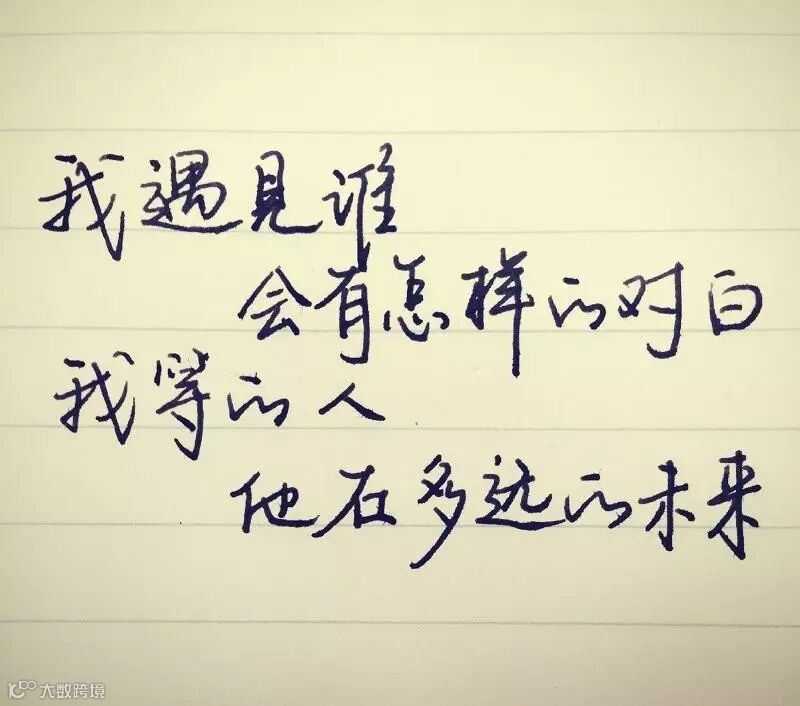 我遇見谁
会有怎样的对白
我等的人
他在多远的未来
大数跨境